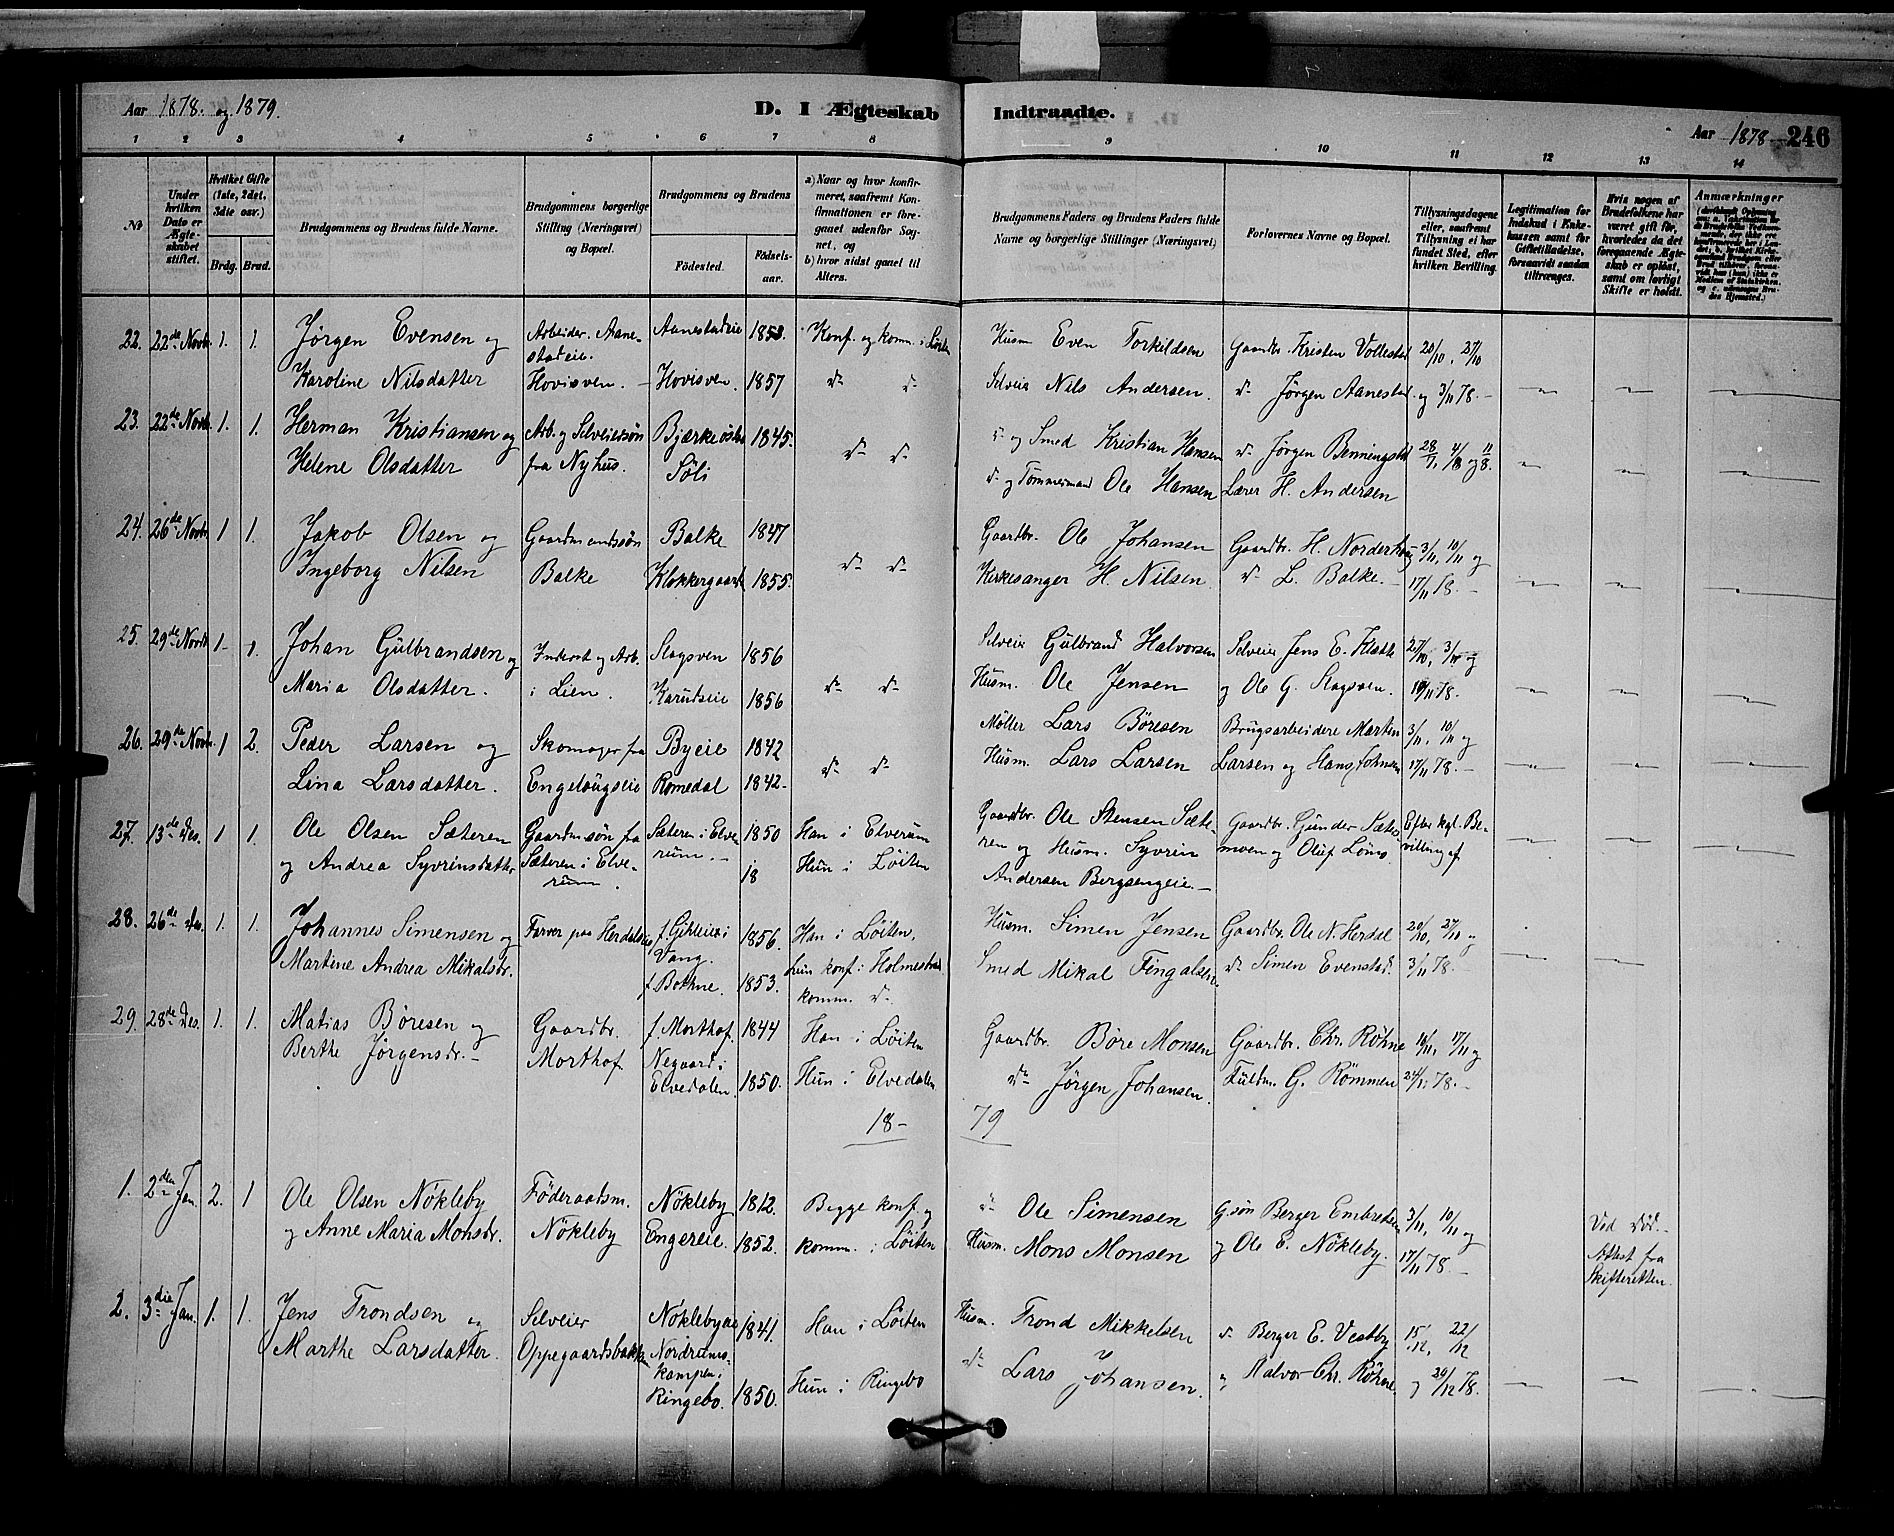 Aar 1878. og 1879. D. I Ægteskab Indtraadte. Aar 1878 246
1 2 3 4 5 6 7 8 9 10 11 12 13 14
№
Under hvilken Dato er Ægteskabet stiftet.
Hvilket Gifte (1ste, 2det, 3die osv.)
Brdg. Brud.
Brudgommens og Brudens fulde Navne.
Brudgommens borgerlige Stilling (Næringsvei) og Bopæl.
Brudgommens og Brudens
Fødested. Fødselsaar.
a) Naar og hvor konfirmeret, saafremt Konfirmationen er foregaaet udenfor Sognet, og
b) hvor sidst gaaet til Alters.
Brudgommens Faders og Brudens Faders fulde Navne og borgerlige Stillinger (Næringsvei)
Forlovernes Navne og Bopæl.
Tillysningsdagene eller, saafremt Tillysning ei har fundet Sted, efter hvilken Bevilling.
Legitimation for Indskud i Enkekassen samt for Giftetilladelse, forsaavidt saadan tiltrænges.
Hvis nogen af Brudefolkene har været gift før, hvorledes da det foregaaende Ægteskab er opløst, samt om lovligt Skifte er holdt.
Anmærkninger
22. 22de Novb. 1. 1. Jørgen Evensen og Arbeider. Aane- Aanestadeie 1853. Konf. og komm. i Løiten Husm Even Torkildsen Gaardbr. Kristen Vollestad 20/10, 27/10
stadeie.
Karoline Nilsdatter Hovisven. Hovisven. 1857 Selveier Nils Andersen. Jørgen Aanestad og 3/11 78.
23. 22de Novb. 1. 1. Herman Kristiansen og Arb. og Selveiersøn Bjærkeøstre 1845. og Smed Kristian Hansen Jørgen Benningstad 28/7, 4/8 og 11/8.
Helene Olsdatter fra Nyhus. Søli og Tømmermand Ole Hansen Lærer H. Andersen
24. 26de Novb. 1 1. Jakob Olsen og Gaardmandssøn Balke 1847 Gaardbr. Ole Johansen Gaardbr. H. Norderhaug 3/11, 10/11 og
Ingeborg Nilsen Balke Klokkergaard 1855. Kirkesanger H. Nilsen L. Balke. 17/11 78.
25. 29de Novb. 1 1. Johan Gulbrandsen og Inderst og Arb. Slagsven 1856 Selveier Gulbrand Halvorsen Selveier Jens E. Klætte 27/10, 3/11 og
Maria Olsdatter. i Lien. Karudseie 1856 Husm. Ole Jensen og Ole G. Slagsven. 10/11 78.
26. 29de Novb. 1 2. Peder Larsen og Skomager fra Byeie 1842 Møller Lars Børesen Brugsarbeidere Marten 3/11, 10/11 og
Lina Larsdatter. Engelaugseie Romedal 1842. Husm. Lars Larsen Larsen og Hans Johnsen 17/11 78.
27. 13de Des. 1 1. Ole Olsen Sæteren Gaardmsøn fra Sæteren i Elve- 1850 Han i Elverum Gaardbr. Ole Stensen Sæte- Gaardbr. Gunder Sæter- Efter kgl. Be-
og Andrea Syvrinsdatter Sæteren i Elve- rum. 18 Hun i Løiten ren og Husm. Syvrin moen og Oluf Løms villing af
rum. Andersen Bergsengeie.
28. 26de Des. 1. 1. Johannes Simensen og Farver paa Herdalseie f. Gikleie i 1856. Han i Løiten, Husm. Simen Jensen Gaardbr. Ole N. Herdal 20/10, 27/10 og
Martine Andrea Mikalsdr. Vang. hun konf. i Holmestrand Smed Mikal Fingalsen. Simen Evenstad. 3/11 78.
f. Bothne. 1853. komm.
29. 28de Des. 1. 1. Matias Børesen og Gaardbr. f. Morthof. 1844 Han i Løiten Gaardbr. Børe Monsen Gaardbr. Chr. Røhne 10/11, 17/11 og
Berthe Jørgensdr. Morthof Negaard i Jørgen Johansen. Fuldm. G. Rommen 24/11 78.
Elvedalen. 1850. Hun i Elvedalen
18- 79
1. 2den Jan. 2. 1 Ole Olsen Nökleby Föderaadsm. Nökleby 1812. Begge konf. og Ole Simensen G.søn Berger Embretsen 3/11, 10/11 og
og Anne Maria Monsdr. Nökleby Engereie. 1852. komm. i Løiten Husm. Mons Monsen og Ole E. Nökleby. 17/11 78. Ved Död.
Attest fra
Skifteretten.
2. 3die Jan. 1. 1. Jens Trondsen og Selveier Nöklebyeie 1841. Han i Løiten Husm. Trond Mikkelsen Berger E. Vestby 15/12, 22/12
Marthe Larsdatter. Oppegaardsbakken Nordrums- Lars Johansen. Halvor Chr. Röhne og 29/12 78.
kampen i
Ringebo. 1850. Hun i Ringebo